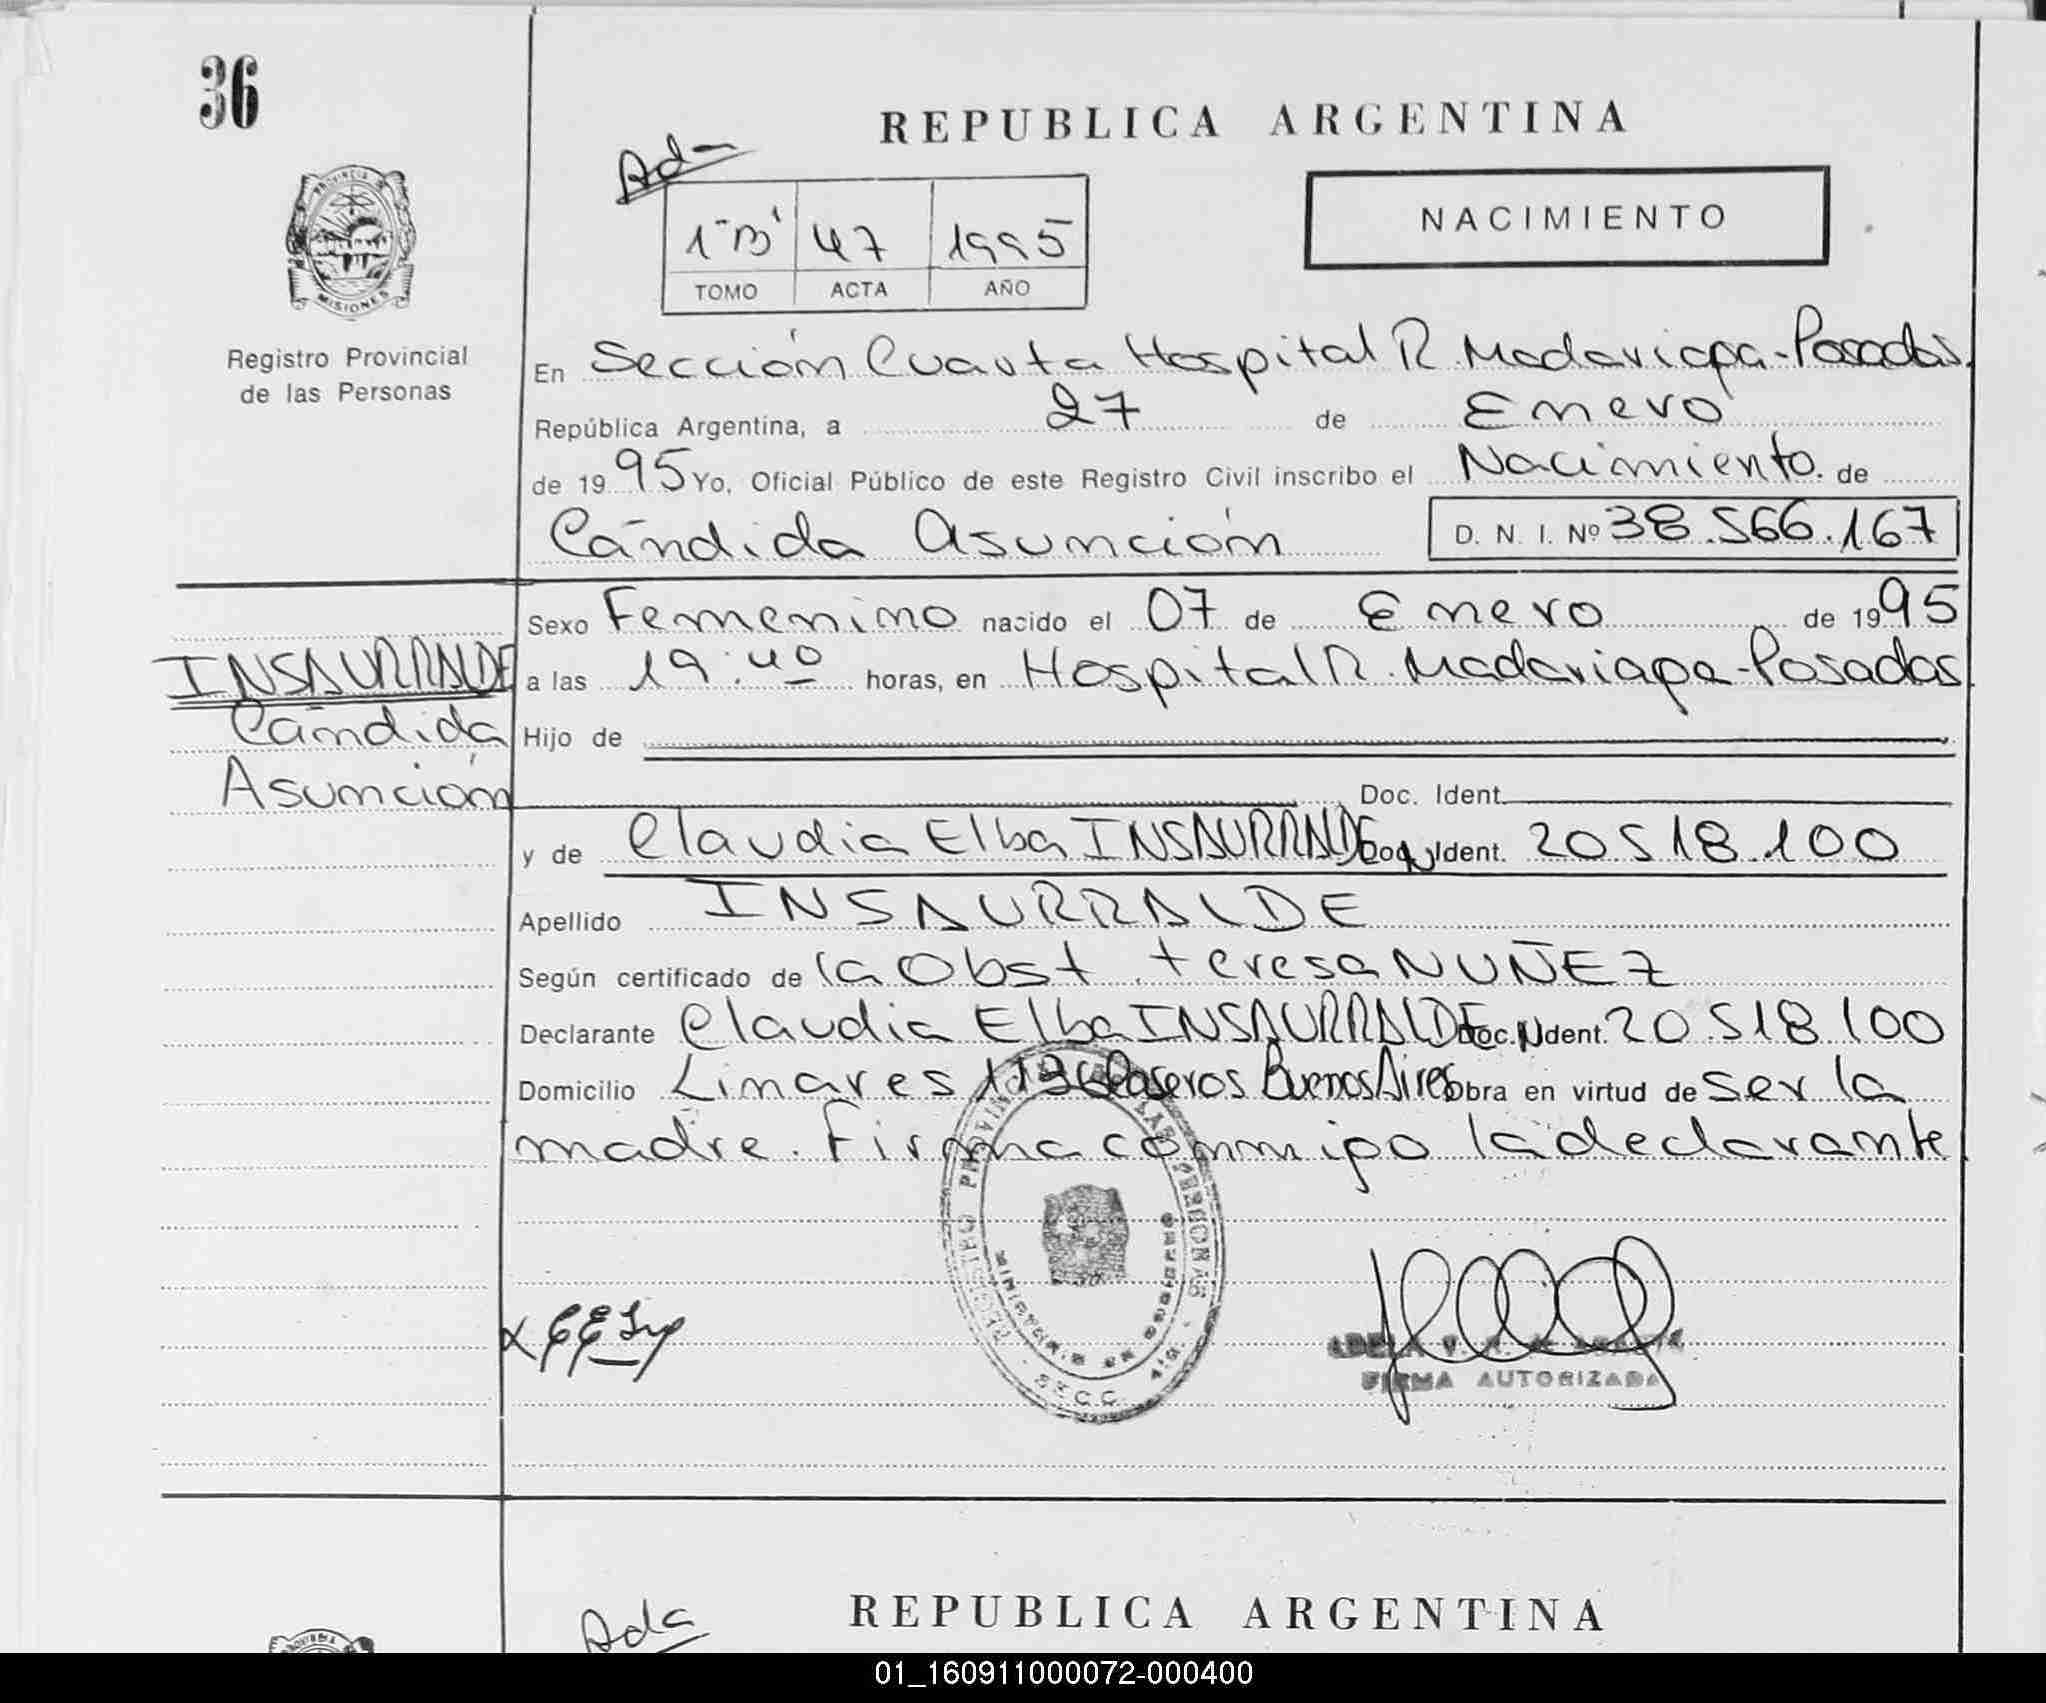 36
REPUBLICA ARGENTINA
NACIMIENTO
1-"B" 47 1995
TOMO ACTA AÑO
PROVINCIA DE
MISIONES
Registro Provincial
de las Personas
En Sección Cuarta Hospital R. Madariaga-Posadas.
República Argentina, a 27 de Enero
de 1995 Yo, Oficial Público de este Registro Civil inscribo el Nacimiento. de
Cándida Asunción D. N. I. Nº 38.566.167
Sexo Femenino nacido el 07 de Enero de 1995
INSAURRALDE
a las 19:40 horas, en Hospital R. Madariaga-Posadas
Cándida
Hijo de
Asunción
Doc. Ident.
y de Claudia Elba INSAURRALDE Doc. Ident. 20.518.100
Apellido INSAURRALDE
Según certificado de la Obst. teresa NUÑEZ
Declarante Claudia Elba INSAURRALDE Doc. Ident. 20.518.100
Domicilio Linares Caseros Buenos Aires Obra en virtud de ser la
madre. Firma conmigo la declarante
REGISTRO PROVINCIAL DE LAS PERSONAS
MINISTERIO DE GOBIERNO
SECC.
ADELA
FIRMA AUTORIZADA
REPUBLICA ARGENTINA
01_160911000072-000400